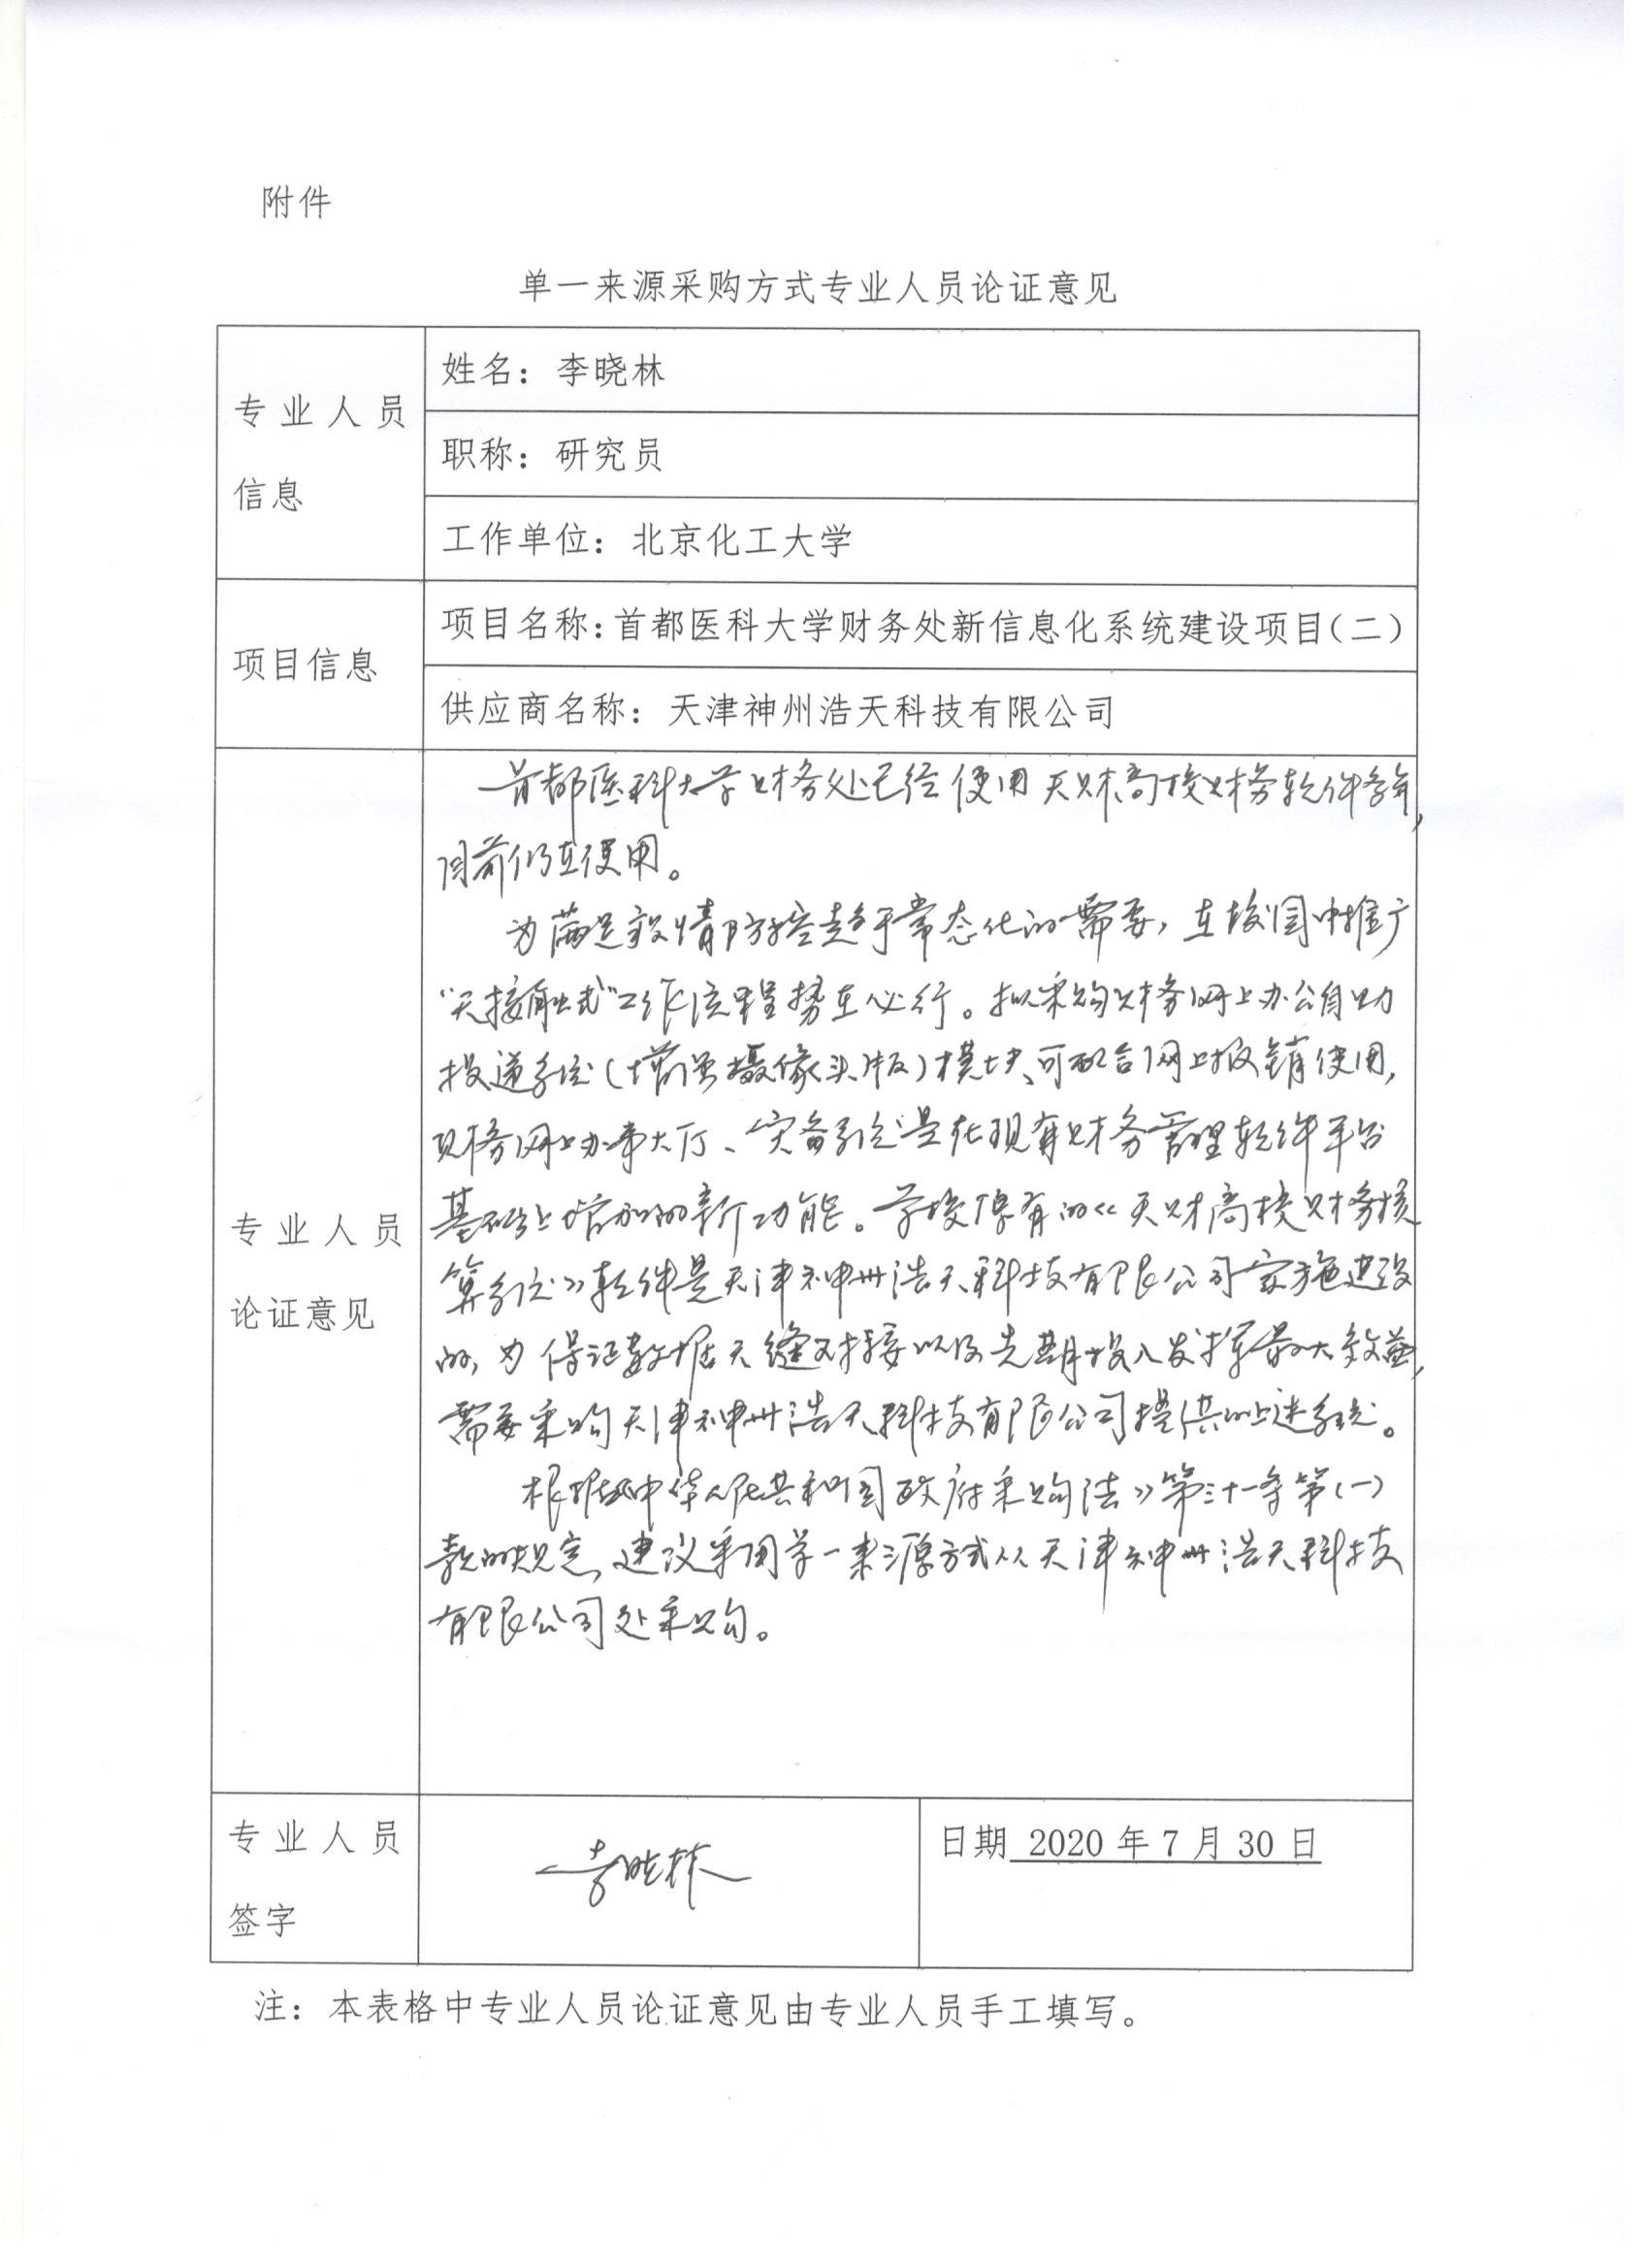 附件
单一来源采购方式专业人员论证意见
专业人员
信息
姓名：李晓林
职称：研究员
工作单位：北京化工大学
项目信息
项目名称：首都医科大学财务处新信息化系统建设项目（二）
供应商名称：天津神州浩天科技有限公司
专业人员
论证意见
首都医科大学财务处已经使用天财高校财务软件多年，
目前仍在使用。
为满足疫情防控趋于常态化的需要，在校园中推广
“无接触式”工作流程势在必行。拟采购财务网上办公自助
投递系统（增强摄像头版）模块、可配合网上报销使用，
财务网上办事大厅、灾备系统是在现有财务管理软件平台
基础上增加的新功能。学校原有的《天财高校财务核
算系统》软件是天津神州浩天科技有限公司实施建设
的，为保证数据无缝对接以及先期投入发挥最大效益，
需要采购天津神州浩天科技有限公司提供的上述系统。
根据《中华人民共和国政府采购法》第三十一条第（一）
款的规定，建议采用单一来源方式从天津神州浩天科技
有限公司处采购。
专业人员
签字
李晓林
日期 2020 年 7 月 30 日
注：本表格中专业人员论证意见由专业人员手工填写。